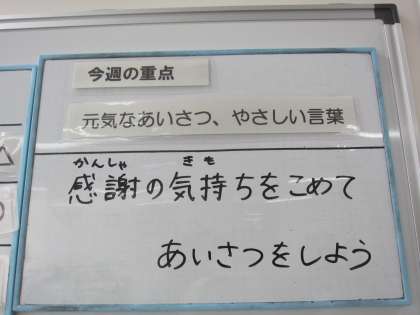 今週の重点
元気なあいさつ、やさしい言葉
かんしゃ きも
感謝の気持ちをこめて
あいさつをしよう